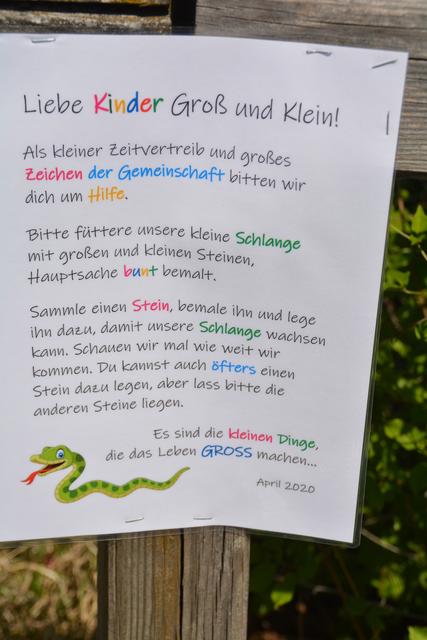 Liebe Kinder Groß und Klein!
Als kleiner Zeitvertreib und großes
Zeichen der Gemeinschaft bitten wir
dich um Hilfe.
Bitte füttere unsere kleine Schlange
mit großen und kleinen Steinen,
Hauptsache bunt bemalt.
Sammle einen Stein, bemale ihn und lege
ihn dazu, damit unsere Schlange wachsen
kann. Schauen wir mal wie weit wir
kommen. Du kannst auch öfters einen
Stein dazu legen, aber lass bitte die
anderen Steine liegen.
Es sind die kleinen Dinge,
die das Leben GROSS machen...
April 2020